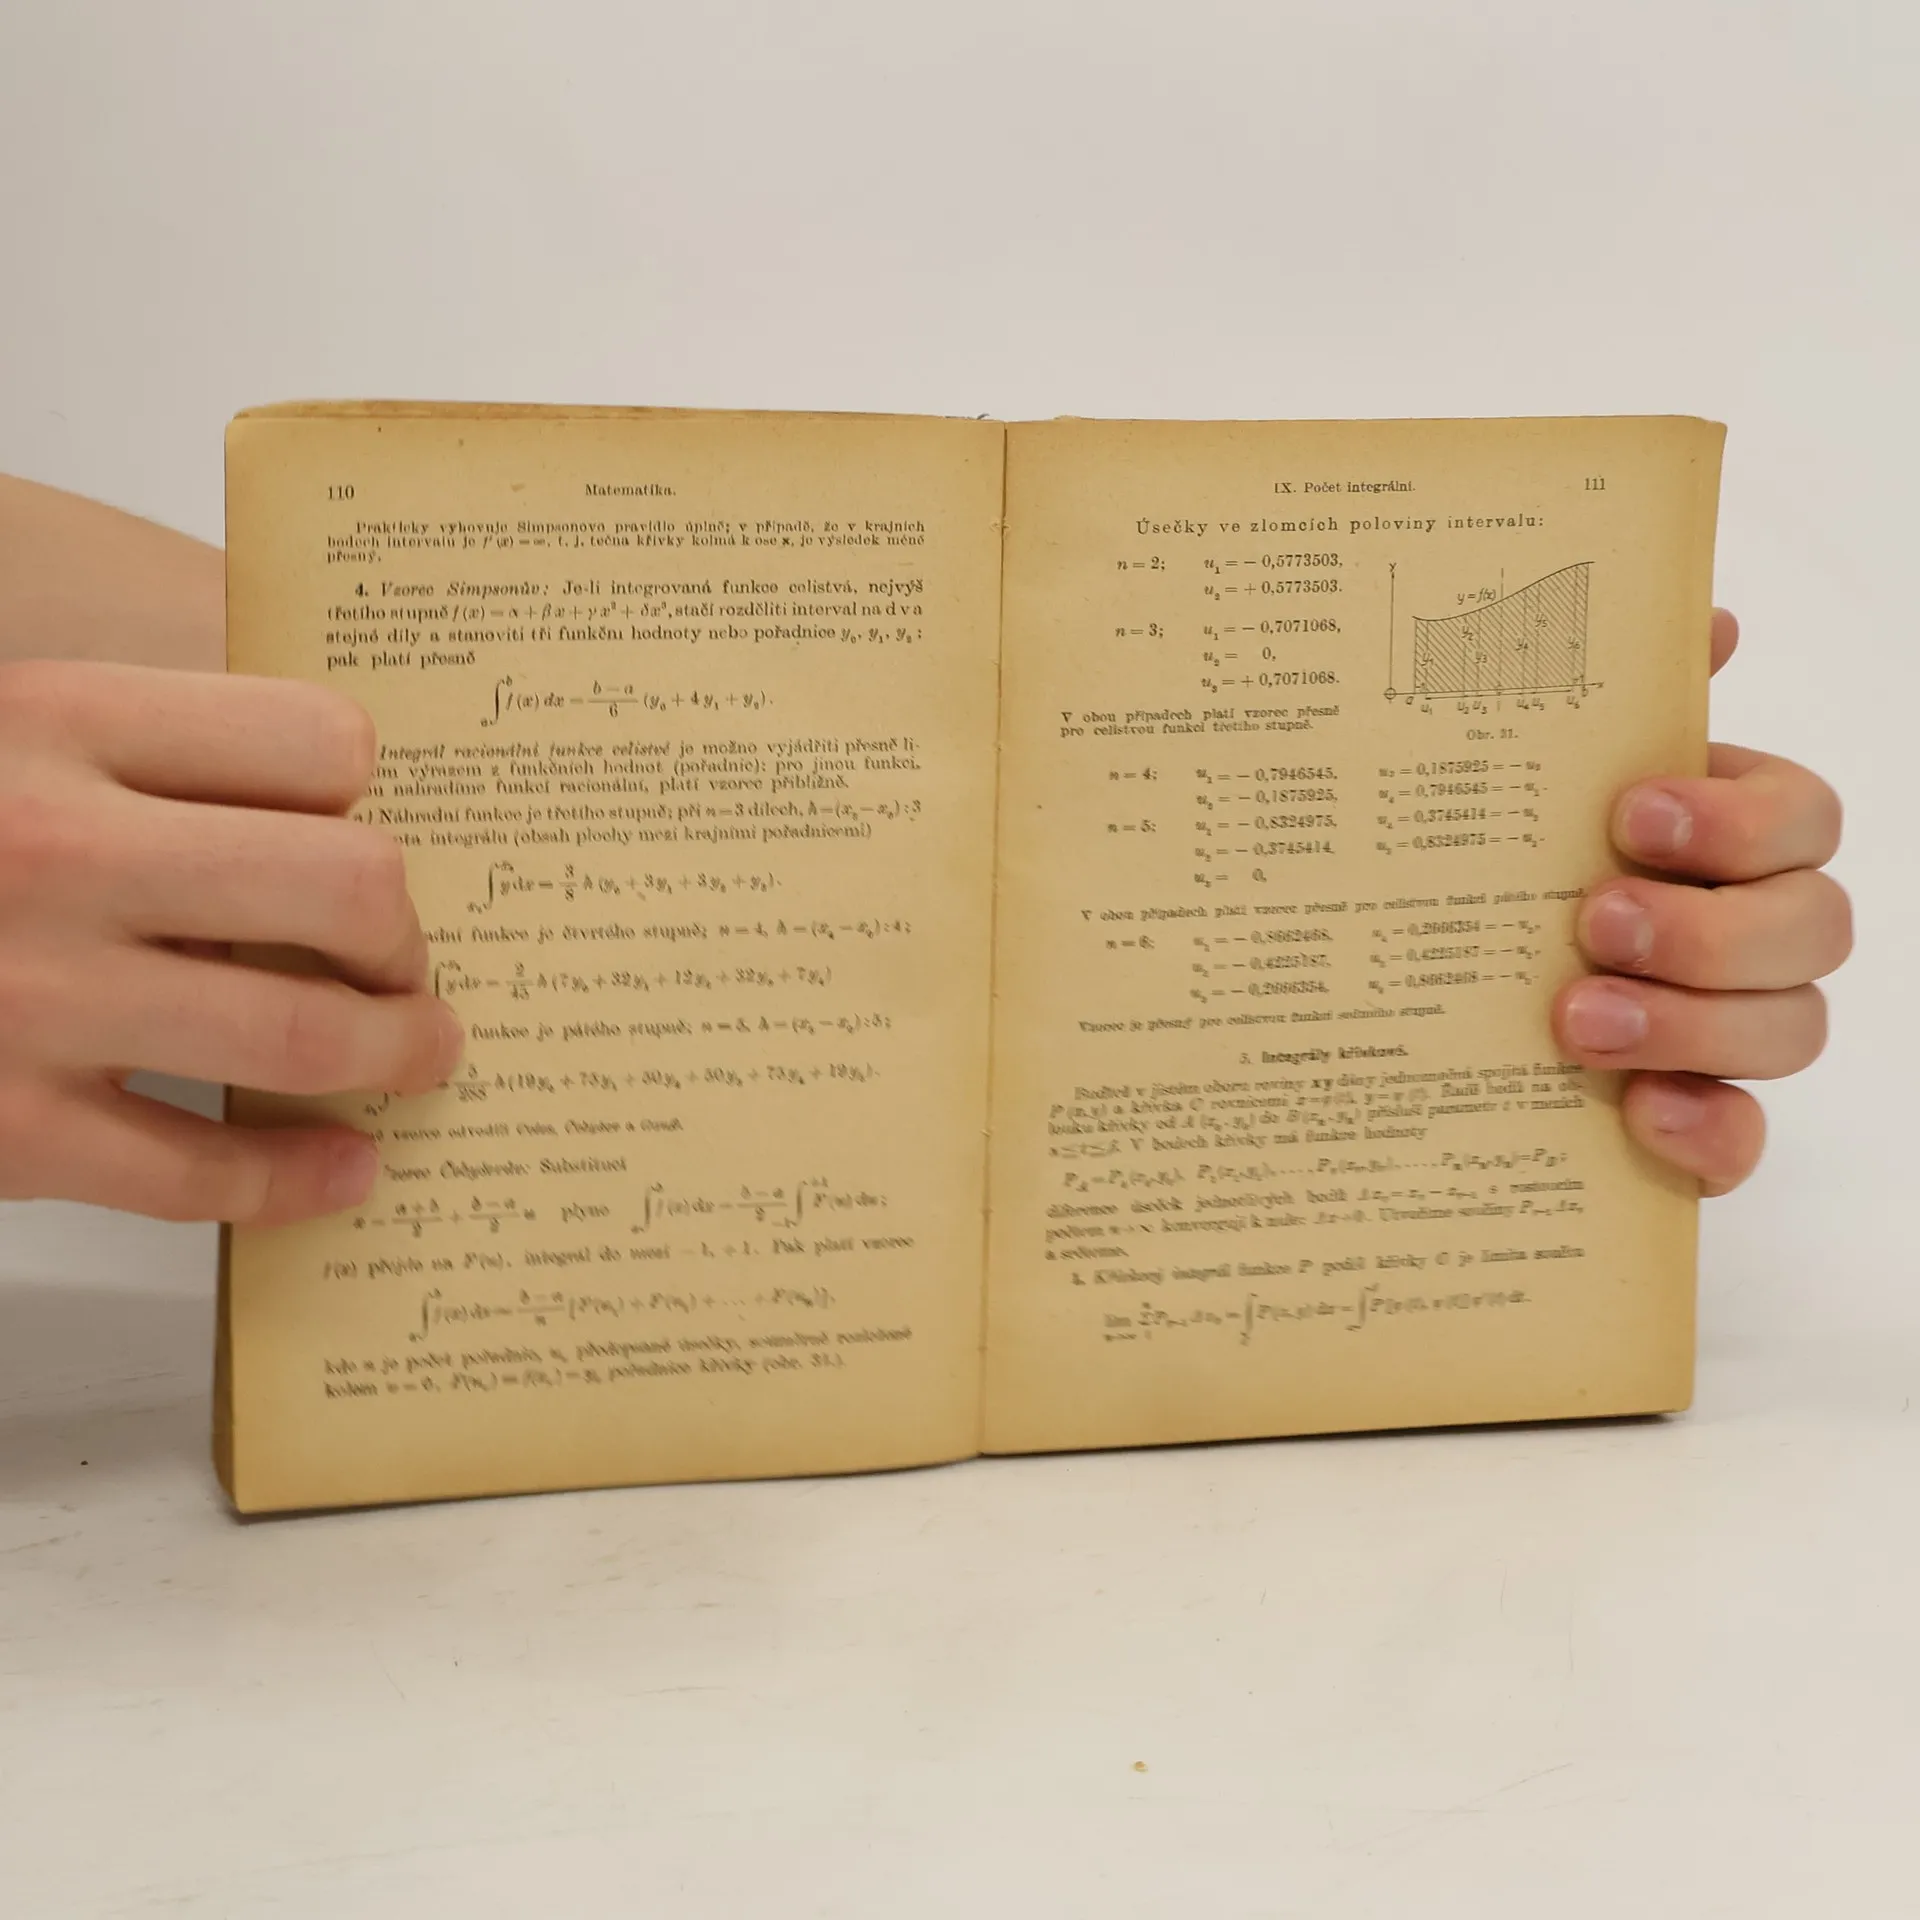 110 Matematika.
Prakticky vyhovuje Simpsonovo pravidlo úplně; v případě, že v krajních
bodech intervalu je f′(x) = ∞, t. j. tečna křivky kolmá k ose x, je výsledek méně
přesný.
4. Vzorec Simpsonův: Je-li integrovaná funkce celistvá, nejvýš
třetího stupně f(x) = α + βx + γx² + δx³, stačí rozděliti interval na dva
stejné díly a stanoviti tři funkční hodnoty nebo pořadnice y₀, y₁, y₂;
pak platí přesně
∫ f(x) dx = b − a / 6 (y₀ + 4 y₁ + y₂).
Integrál racionální funkce celistvé je možno vyjádřiti přesně li-
výrazem z funkčních hodnot (pořadnic); pro jinou funkci,
nahradíme funkcí racionální, platí vzorec přibližně.
a) Náhradní funkce je třetího stupně; při n = 3 dílech, h = (x₃ − x₀) : 3
integrálu (obsah plochy mezi krajními pořadnicemi)
∫ y dx = 3/8 h (y₀ + 3 y₁ + 3 y₂ + y₃).
funkce je čtvrtého stupně; n = 4, h = (x₄ − x₀) : 4;
∫ y dx = 2/45 h (7 y₀ + 32 y₁ + 12 y₂ + 32 y₃ + 7 y₄)
funkce je pátého stupně; n = 5, h = (x₅ − x₀) : 5;
5/288 h (19 y₀ + 75 y₁ + 50 y₂ + 50 y₃ + 75 y₄ + 19 y₅).
vzorce odvodili Cotes,
Substitucí
x = a + b / 2 + b − a / 2 u plyne ∫ f(x) dx = b − a / 2 ∫ F(u) du;
f(x) přejde na F(u), integrál do mezí − 1, + 1. Pak platí vzorec
∫ f(x) dx = b − a / n [F(u₁) + F(u₂) + … + F(uₙ)],
kde n je počet pořadnic, předepsané úsečky, souměrně rozložené
kolem u = 0, pořadnice křivky (obr. 31.).
IX. Počet integrální. 111
Úsečky ve zlomcích poloviny intervalu:
n = 2; u₁ = − 0,5773503,
u₂ = + 0,5773503.
n = 3; u₁ = − 0,7071068,
u₂ = 0,
u₃ = + 0,7071068.
V obou případech platí vzorec přesně
pro celistvou funkci třetího stupně.
Y
y = f(x)
y₁ y₂ y₃ y₄ y₅ y₆
a u₁ u₂ u₃ u₄ u₅ u₆ b x
Obr. 31.
n = 4; u₁ = − 0,7946545, u₃ = 0,1875925 = − u₂
u₂ = − 0,1875925, u₄ = 0,7946545 = − u₁.
n = 5; u₁ = − 0,8324975, u₄ = 0,3745414 = − u₂
u₂ = − 0,3745414, u₅ = 0,8324975 = − u₁.
u₃ = 0,
V obou případech platí vzorec přesně pro celistvou funkci pátého stupně.
n = 6; u₁ = − 0,8662468, u₄ = 0,2666354 = − u₃,
u₂ = − 0,4225187, u₅ = 0,4225187 = − u₂,
u₃ = − 0,2666354, u₆ = 0,8662468 = − u₁.
Vzorec je přesný pro celistvou funkci sedmého stupně.
5. Integrály křivkové.
v jistém oboru roviny xy dány jednoznačná spojitá funkce
P(x, y) a křivka C rovnicemi x = φ(t), y = ψ(t). bodů na ob-
louku křivky od A (x₀, y₀) do B (xₙ, yₙ) přísluší parametr t v mezích
V bodech křivky má funkce hodnoty
diference úseček jednotlivých bodů s rostoucím
počtem n → ∞ konvergují k nule; Utvoříme součiny
a sečteme.
Křivkový integrál funkce P podél křivky C je limita součtu